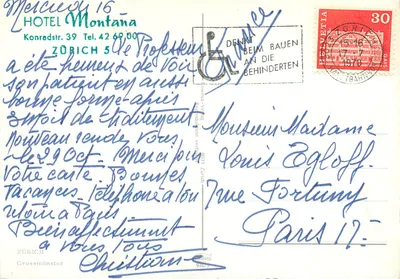 Mercredi 16
HOTEL Montana
Konradstr. 39 Tel. 42 69 00
ZÜRICH 5
le Professeur
a été heureux de voir
son patient en aussi
bonne forme après
2 mois de traitement.
nouveau rendez vous
le 2 Oct. Merci pour
votre carte. Bonnes
vacances. Téléphone à ton
à Paris
Bien affectueusement
à vous tous
Christiane
ZÜRICH
Grossmünster
France
DENKT
BEIM BAUEN
AN DIE
BEHINDERTEN
HELVETIA
30
Monsieur Madame
Louis Egloff
7 rue Fortuny
Paris 17-